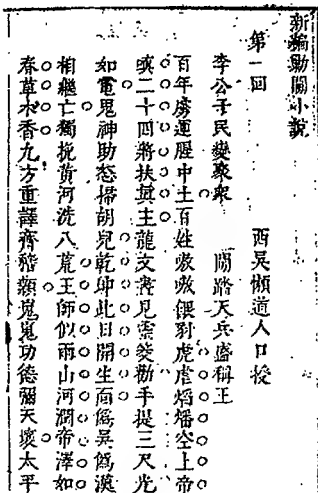 新編勦闖小說
第一回　西吳懶道人口授
李公子民變聚衆　闖踏天兵盛稱王
百年虜運腥中土百姓嗷嗷偎豺虎虐焰燔空上帝
嗔二十四將扶眞主龍文蚤見手提三尺光
如電鬼神助怒掃胡兒乾坤此日開生面偽吳偽漢
相繼亡獨挽黃河洗八荒王師似雨山河潤帝澤如
春草木香九方重譯齊稽顙嵬嵬功德彌天壤太平